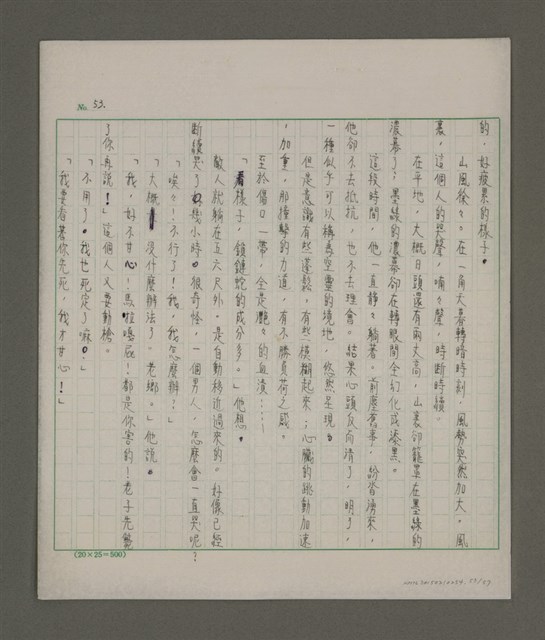 No. 53.
的，好疲累的樣子。
山風徐々。在一角天暮轉暗時刻，風勢突然加大，風
裏，這個人的哭聲，喃々聲，時斷時續。
在平地，大概日頭還有兩丈高，山裏卻籠罩在墨綠的
濃暮了。墨綠的濃暮卻在轉眼間全幻化成漆黑。
這段時間，他一直靜々躺著。前塵舊事，紛沓湧來，
他卻不去抵抗，也不去理會。結果心頭反而清了，明了，
一種似乎可以稱為空靈的境地，悠然呈現。
但是意識有些蓬鬆，有些模糊起來；心臟的跳動加速
，加重，那撞擊的力道，有不勝負荷之感。
至於傷口一帶，全是灩々的血漬……
「看樣子，鎖鏈蛇的成分多。」他想。
敵人就躺在五六尺外。是自動移近過來的。好像已經
斷續哭了好幾小時。很奇怪，一個男人，怎麼會一直哭呢？
「唉々！不行了！我，我怎麼辦？」
「大概沒什麼辦法了。老鄉。」他說。
「我，好不甘心！馬啦嘎屁！都是你害的！老子先斃
了你再說！」這個人又要動槍。
「不用了。我也死定了嘛。」
「我要看著你先死，我才甘心！」
(20×25=500)